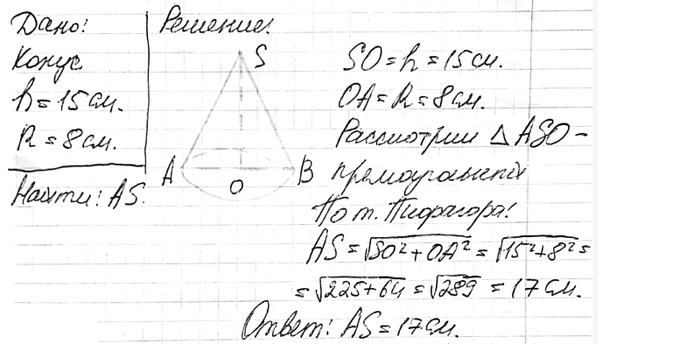 Дано:
Конус
h = 15 см.
R = 8 см.
Найти: AS.
Решение:
S
A
O
B
SO = h = 15 см.
OA = R = 8 см.
Рассмотрим △ASO –
прямоугольный
По т. Пифагора:
AS = √SO² + OA² = √15² + 8² =
= √225 + 64 = √289 = 17 см.
Ответ: AS = 17 см.